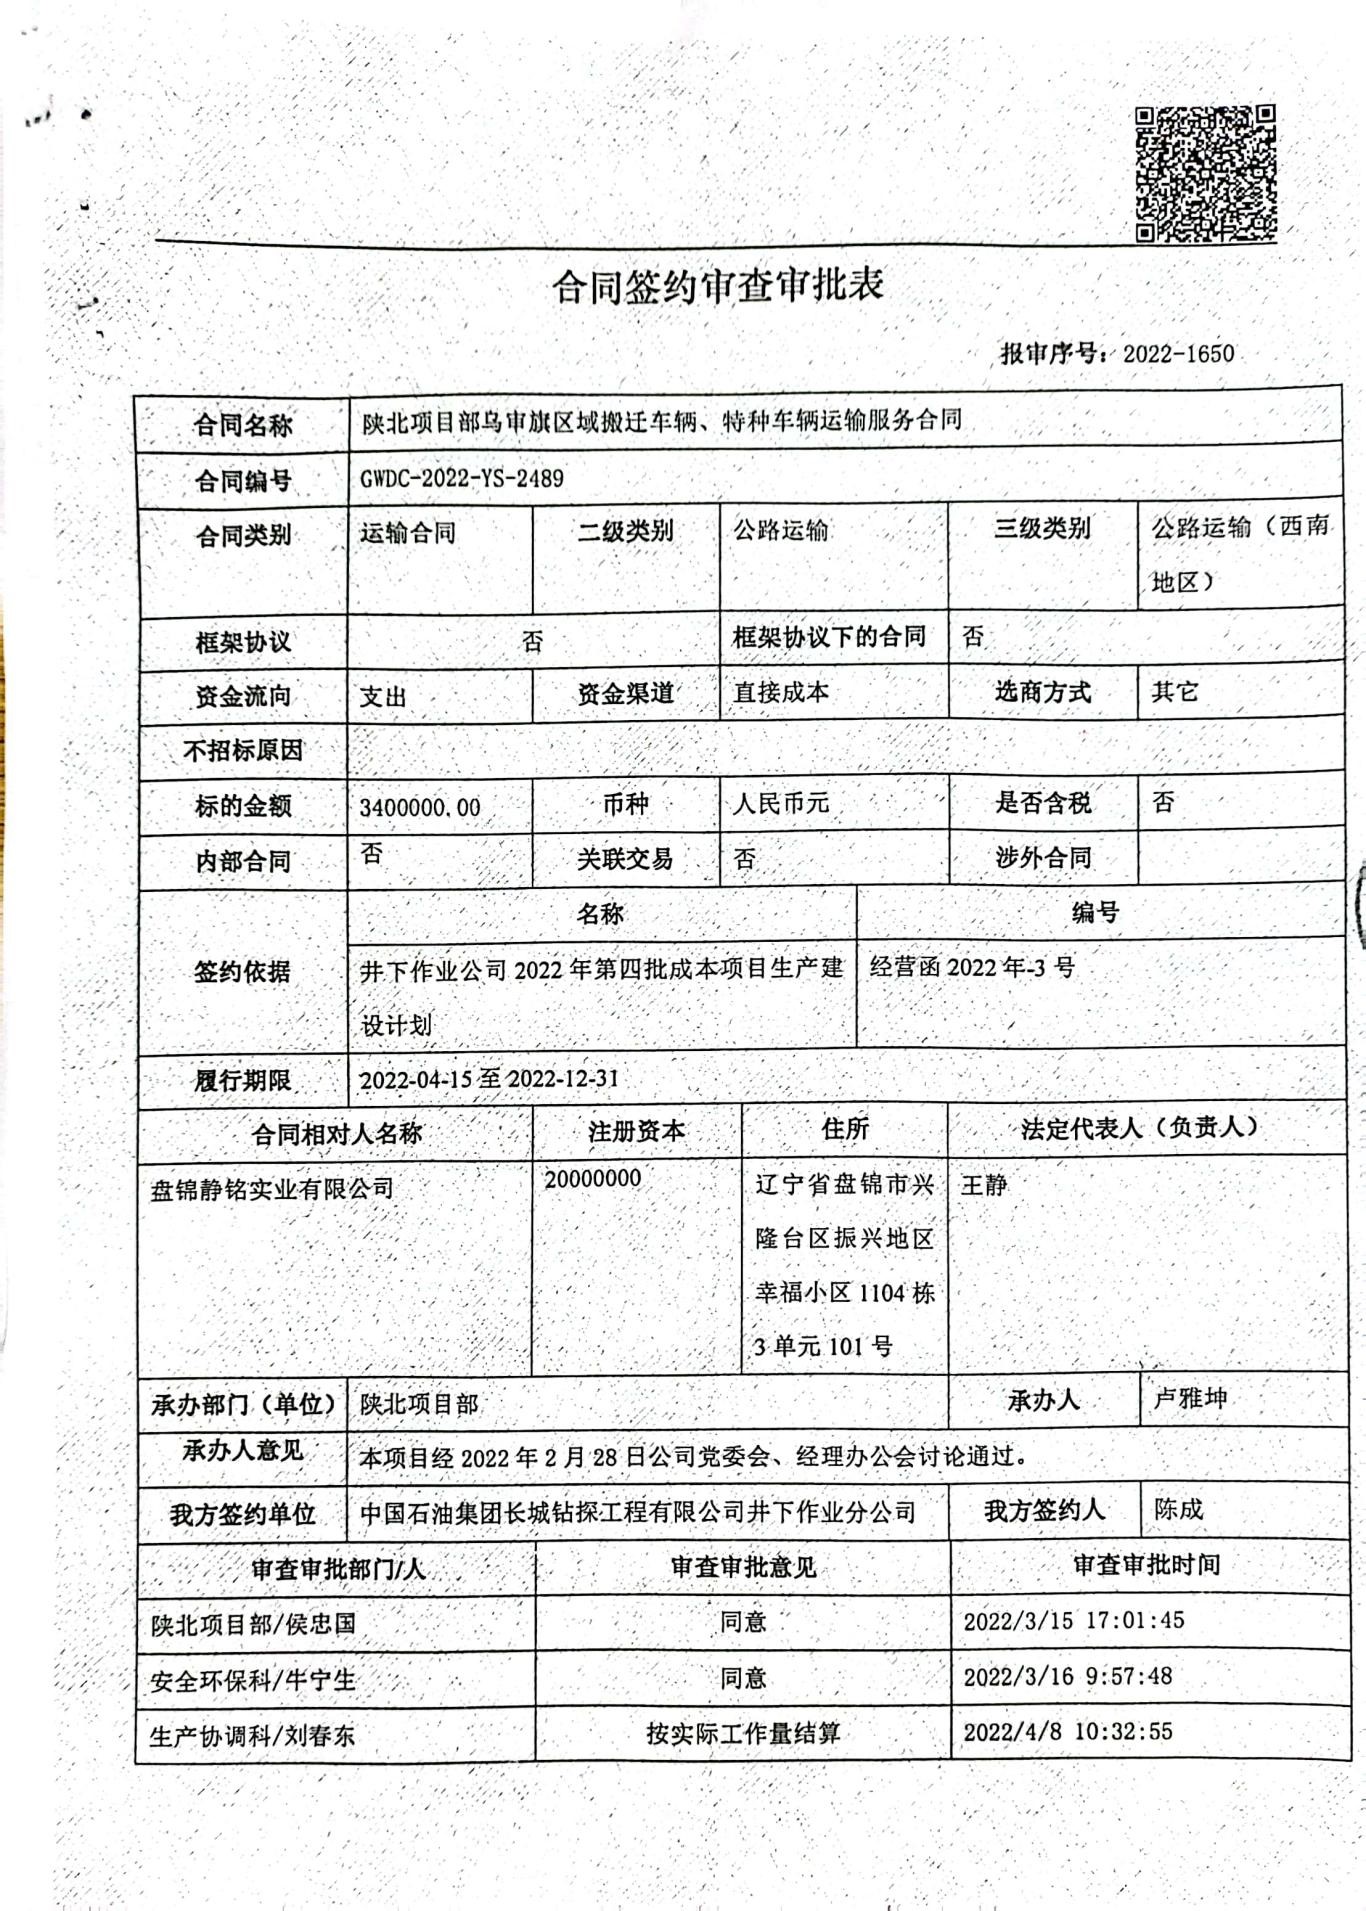 合同签约审查审批表
报审序号：2022-1650
合同名称 陕北项目部乌审旗区域搬迁车辆、特种车辆运输服务合同
合同编号 GWDC-2022-YS-2489
合同类别 运输合同 二级类别 公路运输 三级类别 公路运输（西南
地区）
框架协议 否 框架协议下的合同 否
资金流向 支出 资金渠道 直接成本 选商方式 其它
不招标原因
标的金额 3400000.00 币种 人民币元 是否含税 否
内部合同 否 关联交易 否 涉外合同
名称 编号
签约依据 井下作业公司 2022 年第四批成本项目生产建 经营函 2022 年-3 号
设计划
履行期限 2022-04-15 至 2022-12-31
合同相对人名称 注册资本 住所 法定代表人（负责人）
盘锦静铭实业有限公司 20000000 辽宁省盘锦市兴 王静
隆台区振兴地区
幸福小区 1104 栋
3 单元 101 号
承办部门（单位） 陕北项目部 承办人 卢雅坤
承办人意见 本项目经 2022 年 2 月 28 日公司党委会、经理办公会讨论通过。
我方签约单位 中国石油集团长城钻探工程有限公司井下作业分公司 我方签约人 陈成
审查审批部门/人 审查审批意见 审查审批时间
陕北项目部/侯忠国 同意 2022/3/15 17:01:45
安全环保科/牛宁生 同意 2022/3/16 9:57:48
生产协调科/刘春东 按实际工作量结算 2022/4/8 10:32:55